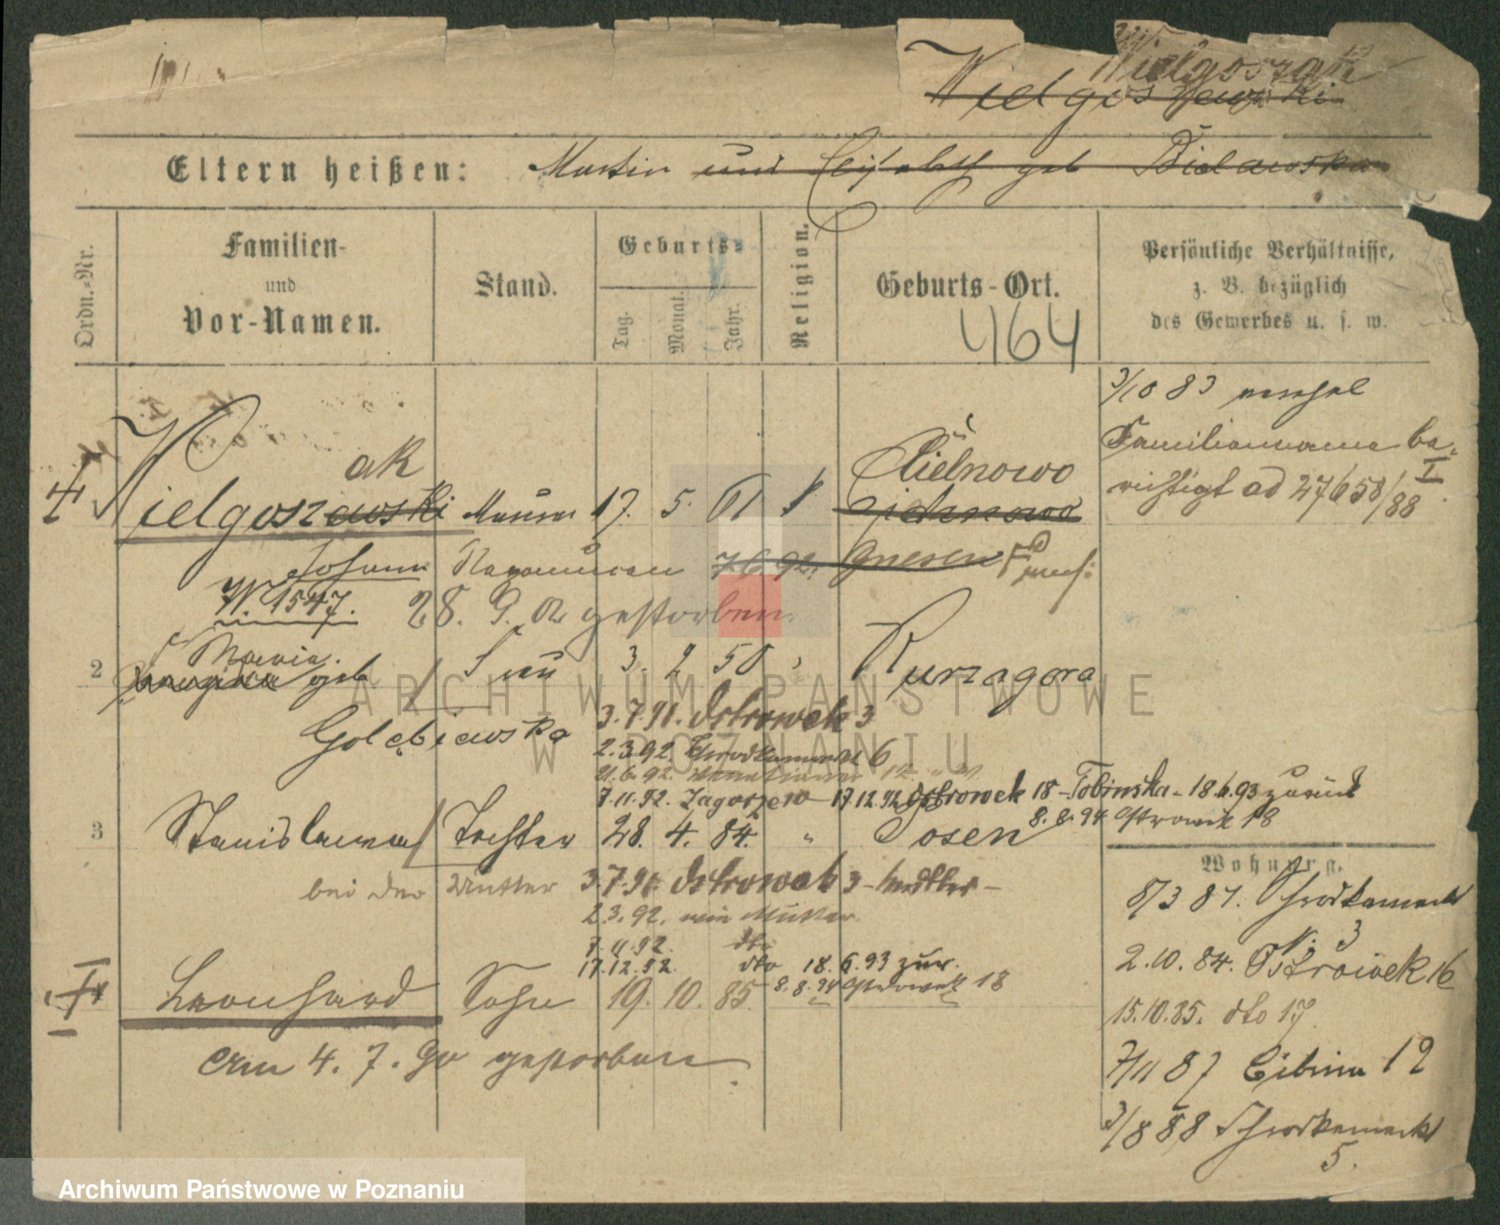 Wielgoszak
Wielgoszewski
Eltern heißen: Martin und Elisabeth geb Bielawska
Ordn.-Nr.
Familien-
und
Vor-Namen.
Stand.
Geburts-
Tag.
Monat.
Jahr.
Religion.
Geburts-Ort.
464
Persönliche Verhältnisse,
z. B. bezüglich
des Gewerbes u. s. w.
3/10 83
Familienname be-
richtigt ad 27658/88 I
ak
Wielgoszewski Maurer 17. 5. 61 Cielnowo
Johann 7.6.92. Gnesen
W. 1547. 28. 9. gestorben
2 Maria geb Frau 3. 2 50 Kurzagora
Golębiewska 3.7.91. Ostrowek 3
2.3.92. Schrodkamarkt 6
21.6.92.
7.11.92. Zagorze 10 17.12.92 Ostrowek 18 - Tobinska - 18.6.93 zurück
8.8.94 Ostrowek 18
3 Stanislawa Tochter 28. 4. 84. " Posen
bei der Mutter 3.7.91. Ostrowek 3
2.3.92. wie Mutter
7.11.92. dto
17.12.92 dto 18.6.93 zur.
8.8.94 Ostrowek 18
Leonhard Sohn 19. 10. 85
am 4. 7. 90 gestorben
Wohnung.
8/3 81. Schrodkamarkt
N. 3
2.10.84. Ostrowek 16
15.10.85. dto 17
7/11 87 Cibina 12
3/8 88 Schrodkamarkt
5.
ARCHIWUM PAŃSTWOWE
W POZNANIU
Archiwum Państwowe w Poznaniu